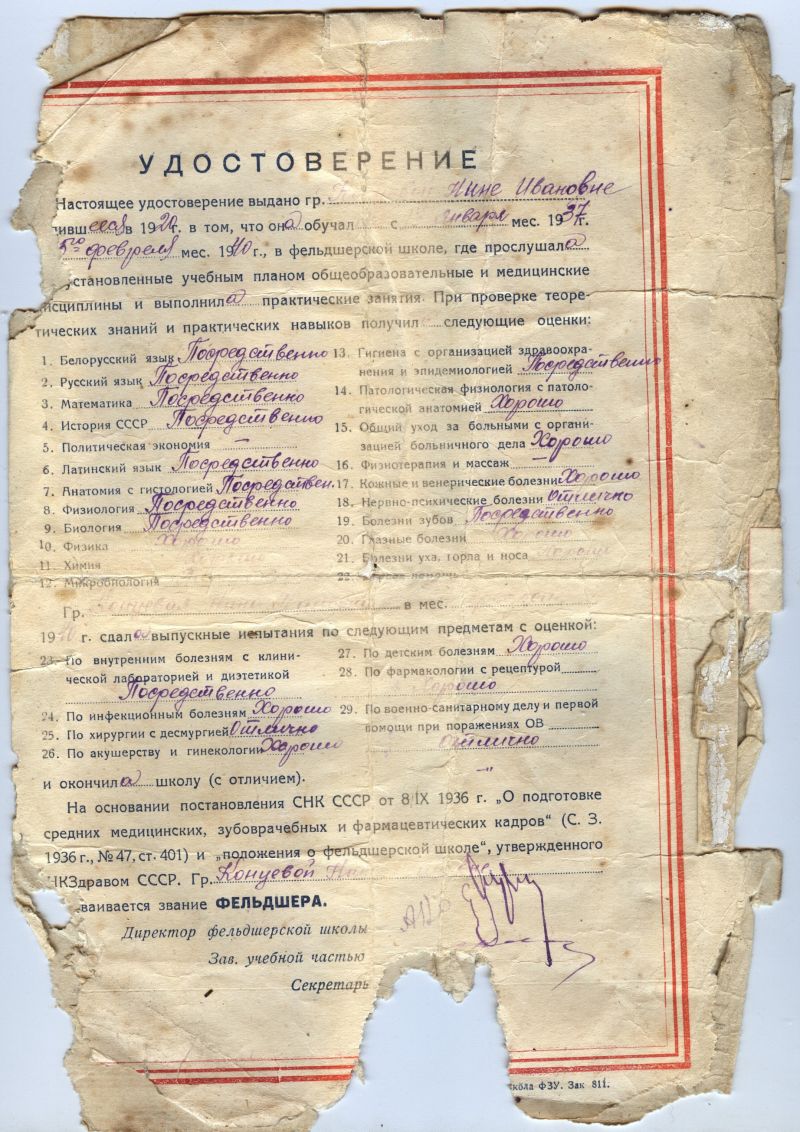 УДОСТОВЕРЕНИЕ
Настоящее удостоверение выдано гр. Нине Ивановне
ившейся в 1920 г. в том, что она обучал с января мес. 1937 г.
5го февраля мес. 1940 г., в фельдшерской школе, где прослушала
установленные учебным планом общеобразовательные и медицинские
исциплины и выполнила практические занятия. При проверке теоре-
тических знаний и практических навыков получил следующие оценки:
1. Белорусский язык Посредственно
2. Русский язык Посредственно
3. Математика Посредственно
4. История СССР Посредственно
5. Политическая экономия —
6. Латинский язык Посредственно
7. Анатомия с гистологией Посредствен.
8. Физиология Посредственно
9. Биология Посредственно
10. Физика Хорошо
11. Химия
12. Микробиология
13. Гигиена с организацией здравоохра-
нения и эпидемиологией Посредственно
14. Патологическая физиология с патоло-
гической анатомией Хорошо
15. Общий уход за больными с органи-
зацией больничного дела Хорошо
16. Физиотерапия и массаж —
17. Кожные и венерические болезни Хорошо
18. Нервно-психические болезни Отлично
19. Болезни зубов Посредственно
20. Глазные болезни Хорошо
21. Болезни уха, горла и носа Хорошо
22. помощь
Гр. в мес.
1940 г. сдала выпускные испытания по следующим предметам с оценкой:
23. По внутренним болезням с клини-
ческой лабораторией и диэтетикой
Посредственно
24. По инфекционным болезням Хорошо
25. По хирургии с десмургией Отлично
26. По акушерству и гинекологии Хорошо
27. По детским болезням Хорошо
28. По фармакологии с рецептурой
Хорошо
29. По военно-санитарному делу и первой
помощи при поражениях ОВ
Отлично
—"—
и окончила школу (с отличием).
На основании постановления СНК СССР от 8/IX 1936 г. „О подготовке
средних медицинских, зубоврачебных и фармацевтических кадров“ (С. З.
1936 г., № 47, ст. 401) и „положения о фельдшерской школе“, утвержденного
НКЗдравом СССР. Гр. Концевой
ваивается звание ФЕЛЬДШЕРА.
Директор фельдшерской школы
Зав. учебной частью
Секретарь
кола ФЗУ. Зак 811.